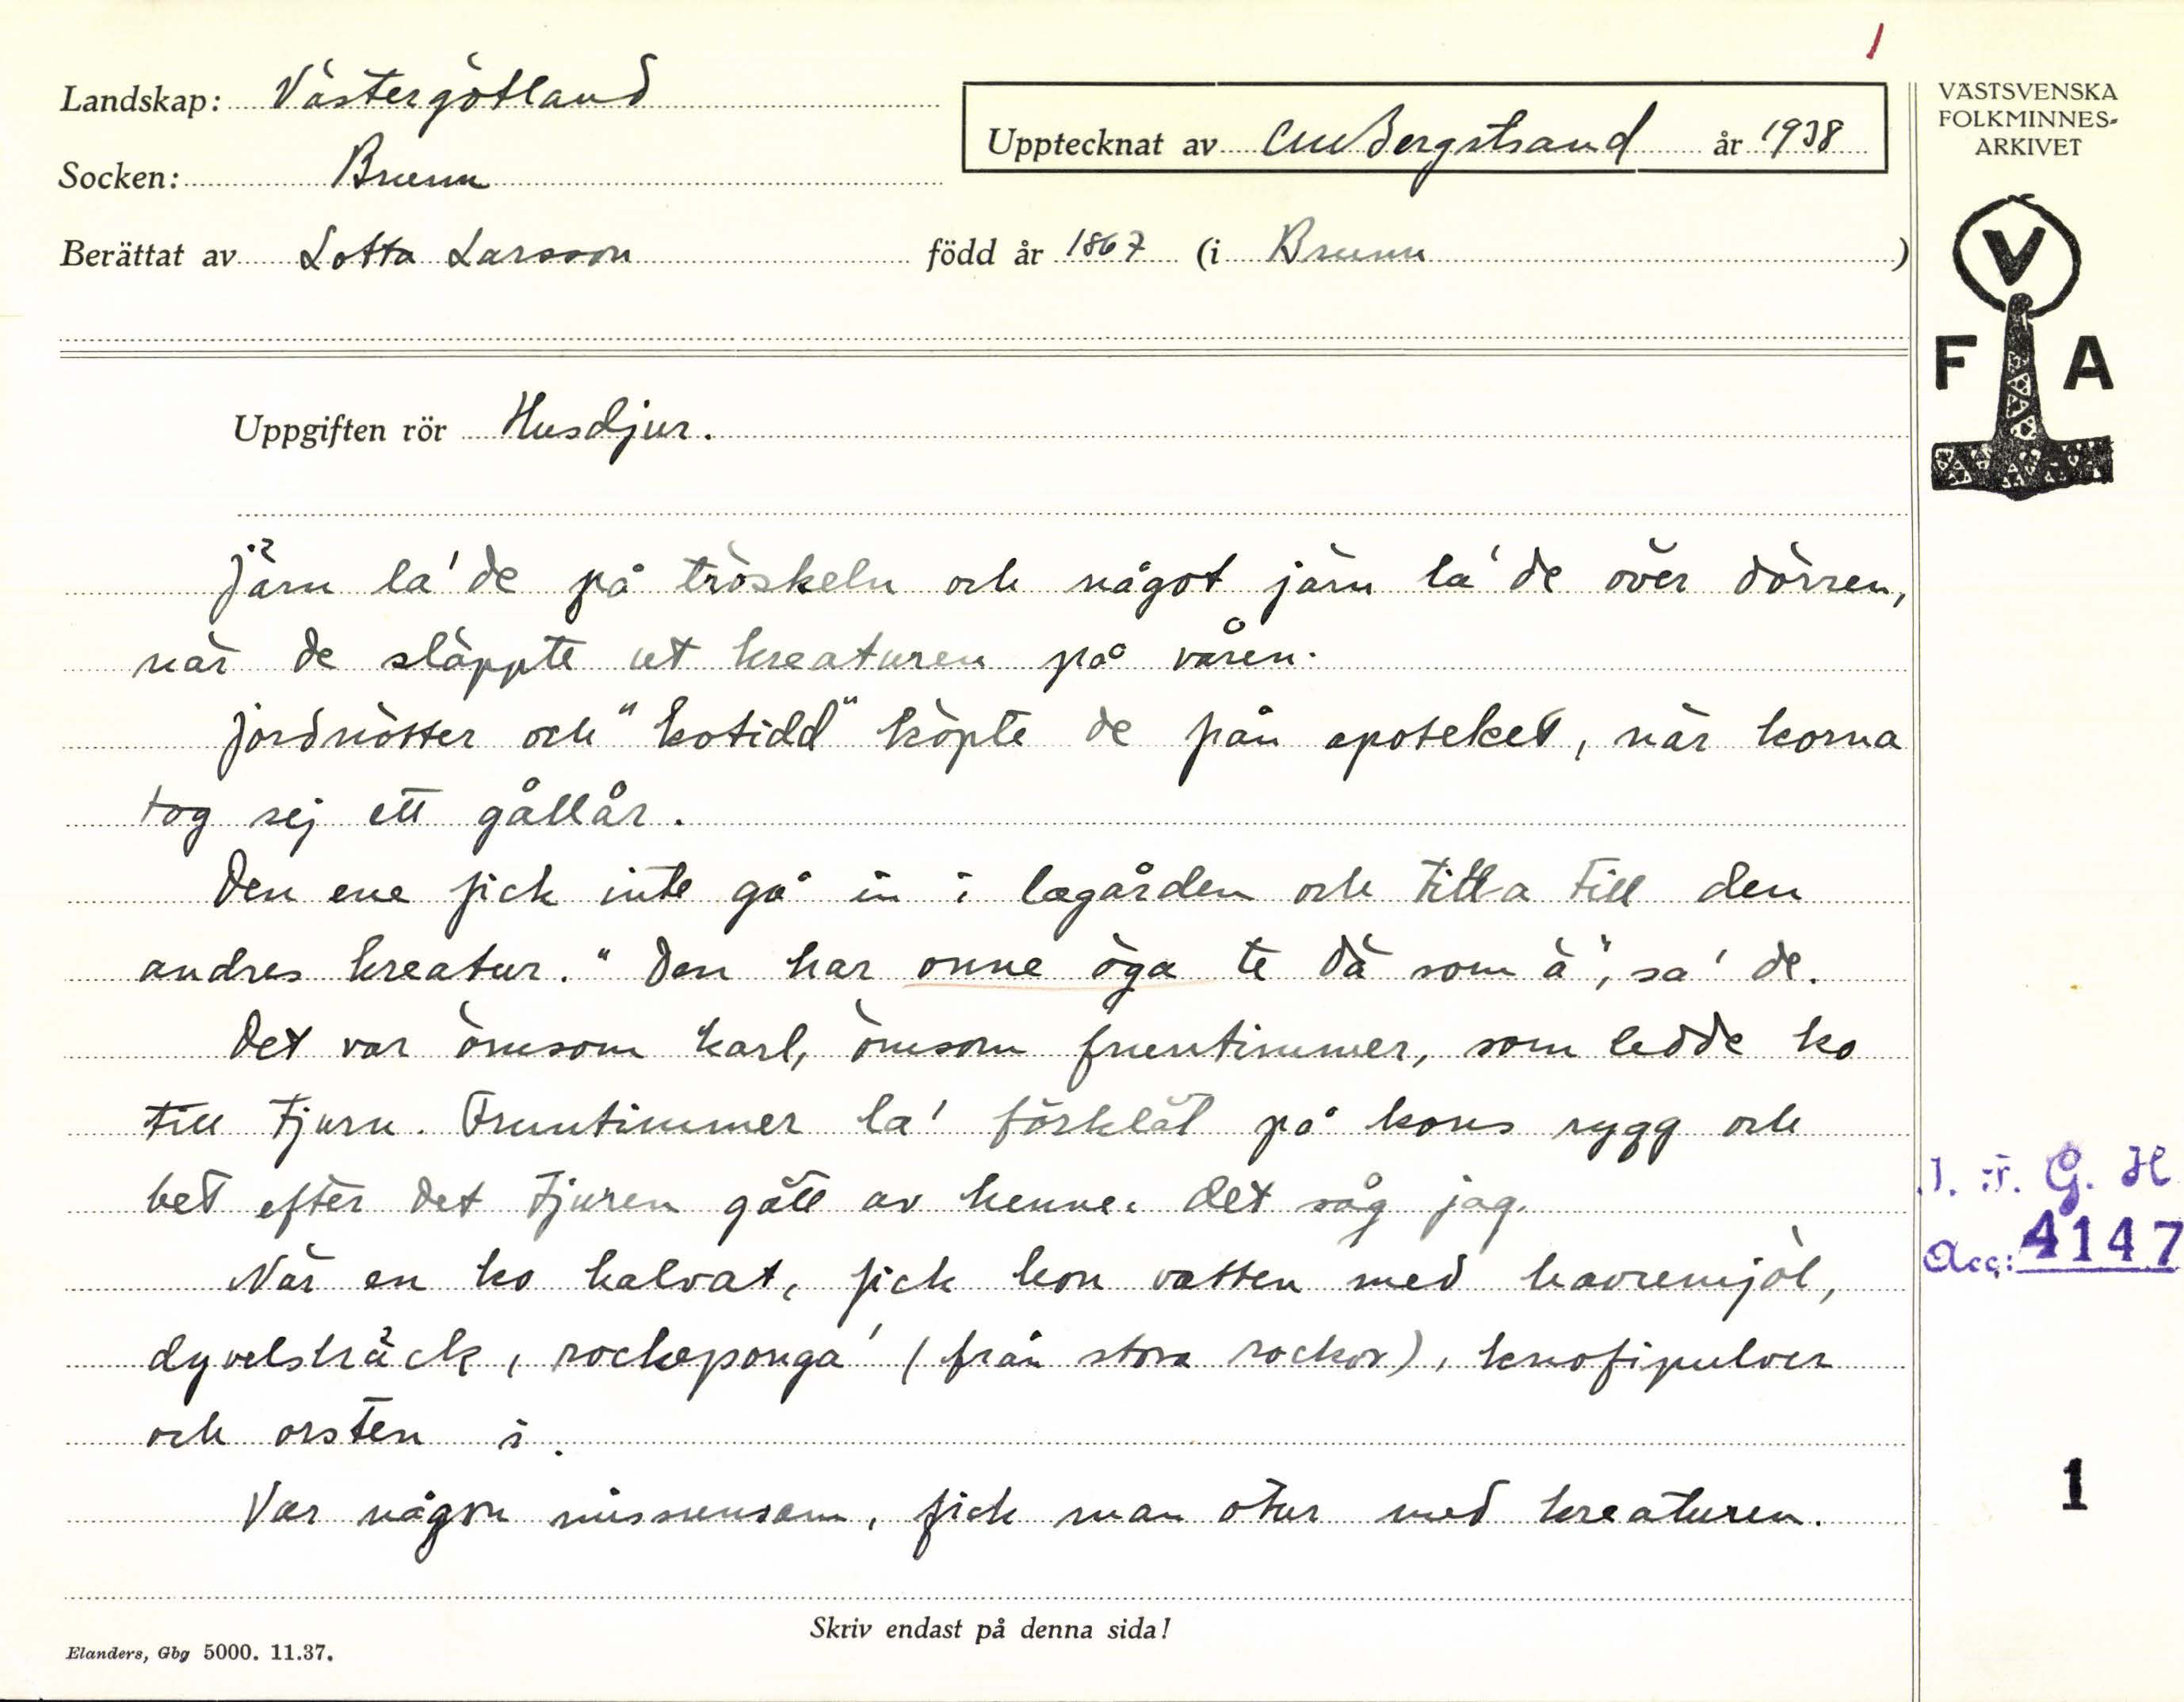 1
Landskap: Västergötland
Upptecknat av CM Bergstrand år 1938
Socken: Brunn
Berättat av Lotta Larsson född år 1867 (i Brunn)
VÄSTSVENSKA
FOLKMINNES-
ARKIVET
V
F A
Uppgiften rör Husdjur.
Järn la' de på tröskeln och något järn la' de över dörren,
när de släppte ut kreaturen på våren.
Jordnötter och "kotidd" köpte de från apoteket, när korna
tog sej ett gållår.
Den ene fick inte gå in i lagården och titta till den
andres kreatur. "Den har onne öga te dä som ä", sa' de.
Det var ömsom karl, ömsom fruntimmer, som ledde ko
till tjurn. Fruntimmer la' förklät på kons rygg och
bet efter det tjuren gått av henne. Det såg jag.
När en ko kalvat, fick hon vatten med havremjöl,
dyvelsträck, rockeponga' (från stora rockor), knofipulver
och orsten i.
Var någon missunsam, fick man otur med kreaturen.
I. F. G. H
Acc: 4147
1
Skriv endast på denna sida!
Elanders, Gbg 5000. 11.37.